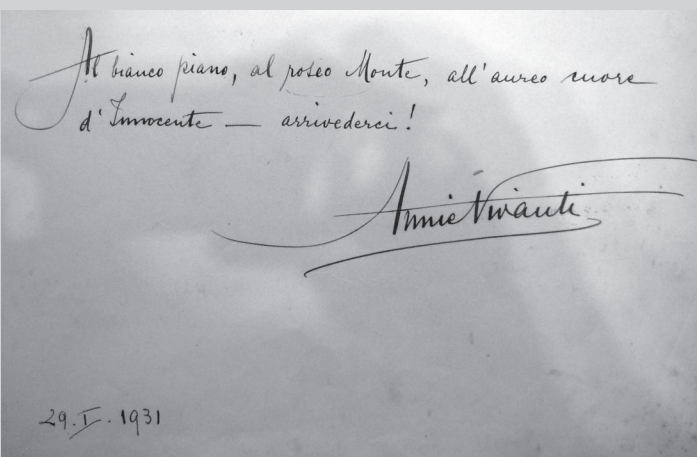 Al bianco piano, al roseo Monte, all'aureo cuore
d'Innocente — arrivederci!
Annie Vivanti
29. I. 1931